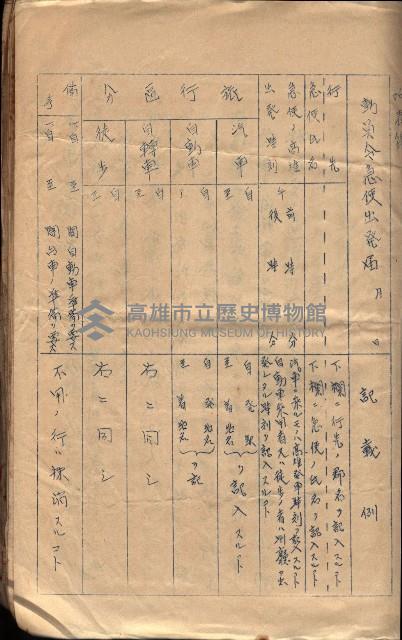 動員令急使出発届 月 日
記載例
行先
下欄ニ行先ノ郡名ヲ記入スルコト
急使氏名
下欄ニ急使ノ氏名ヲ記入スルコト
急使ノ高雄出発時刻
午前後 時 分
汽車ニ乗ルモノハ高雄発車時刻ヲ記入スルコト
自動車乗用者又ハ徒歩ノ者ハ州廳ヲ出
発シタル時刻ヲ記入スルコト
旅行区分
汽車
自 至
自 発駅
至 着駅
ヲ記入スルコト
自動車
自 至
自 発地名
至 着地名
ヲ記
自轉車
自 至
右ニ同シ
徒歩
自 至
右ニ同シ
備考
自 至 間自動車準備ヲ要ス
自 至 間汽車ノ準備ヲ要ス
不用ノ行ハ抹消スルコト
高雄市立歷史博物館
KAOHSIUNG MUSEUM OF HISTORY